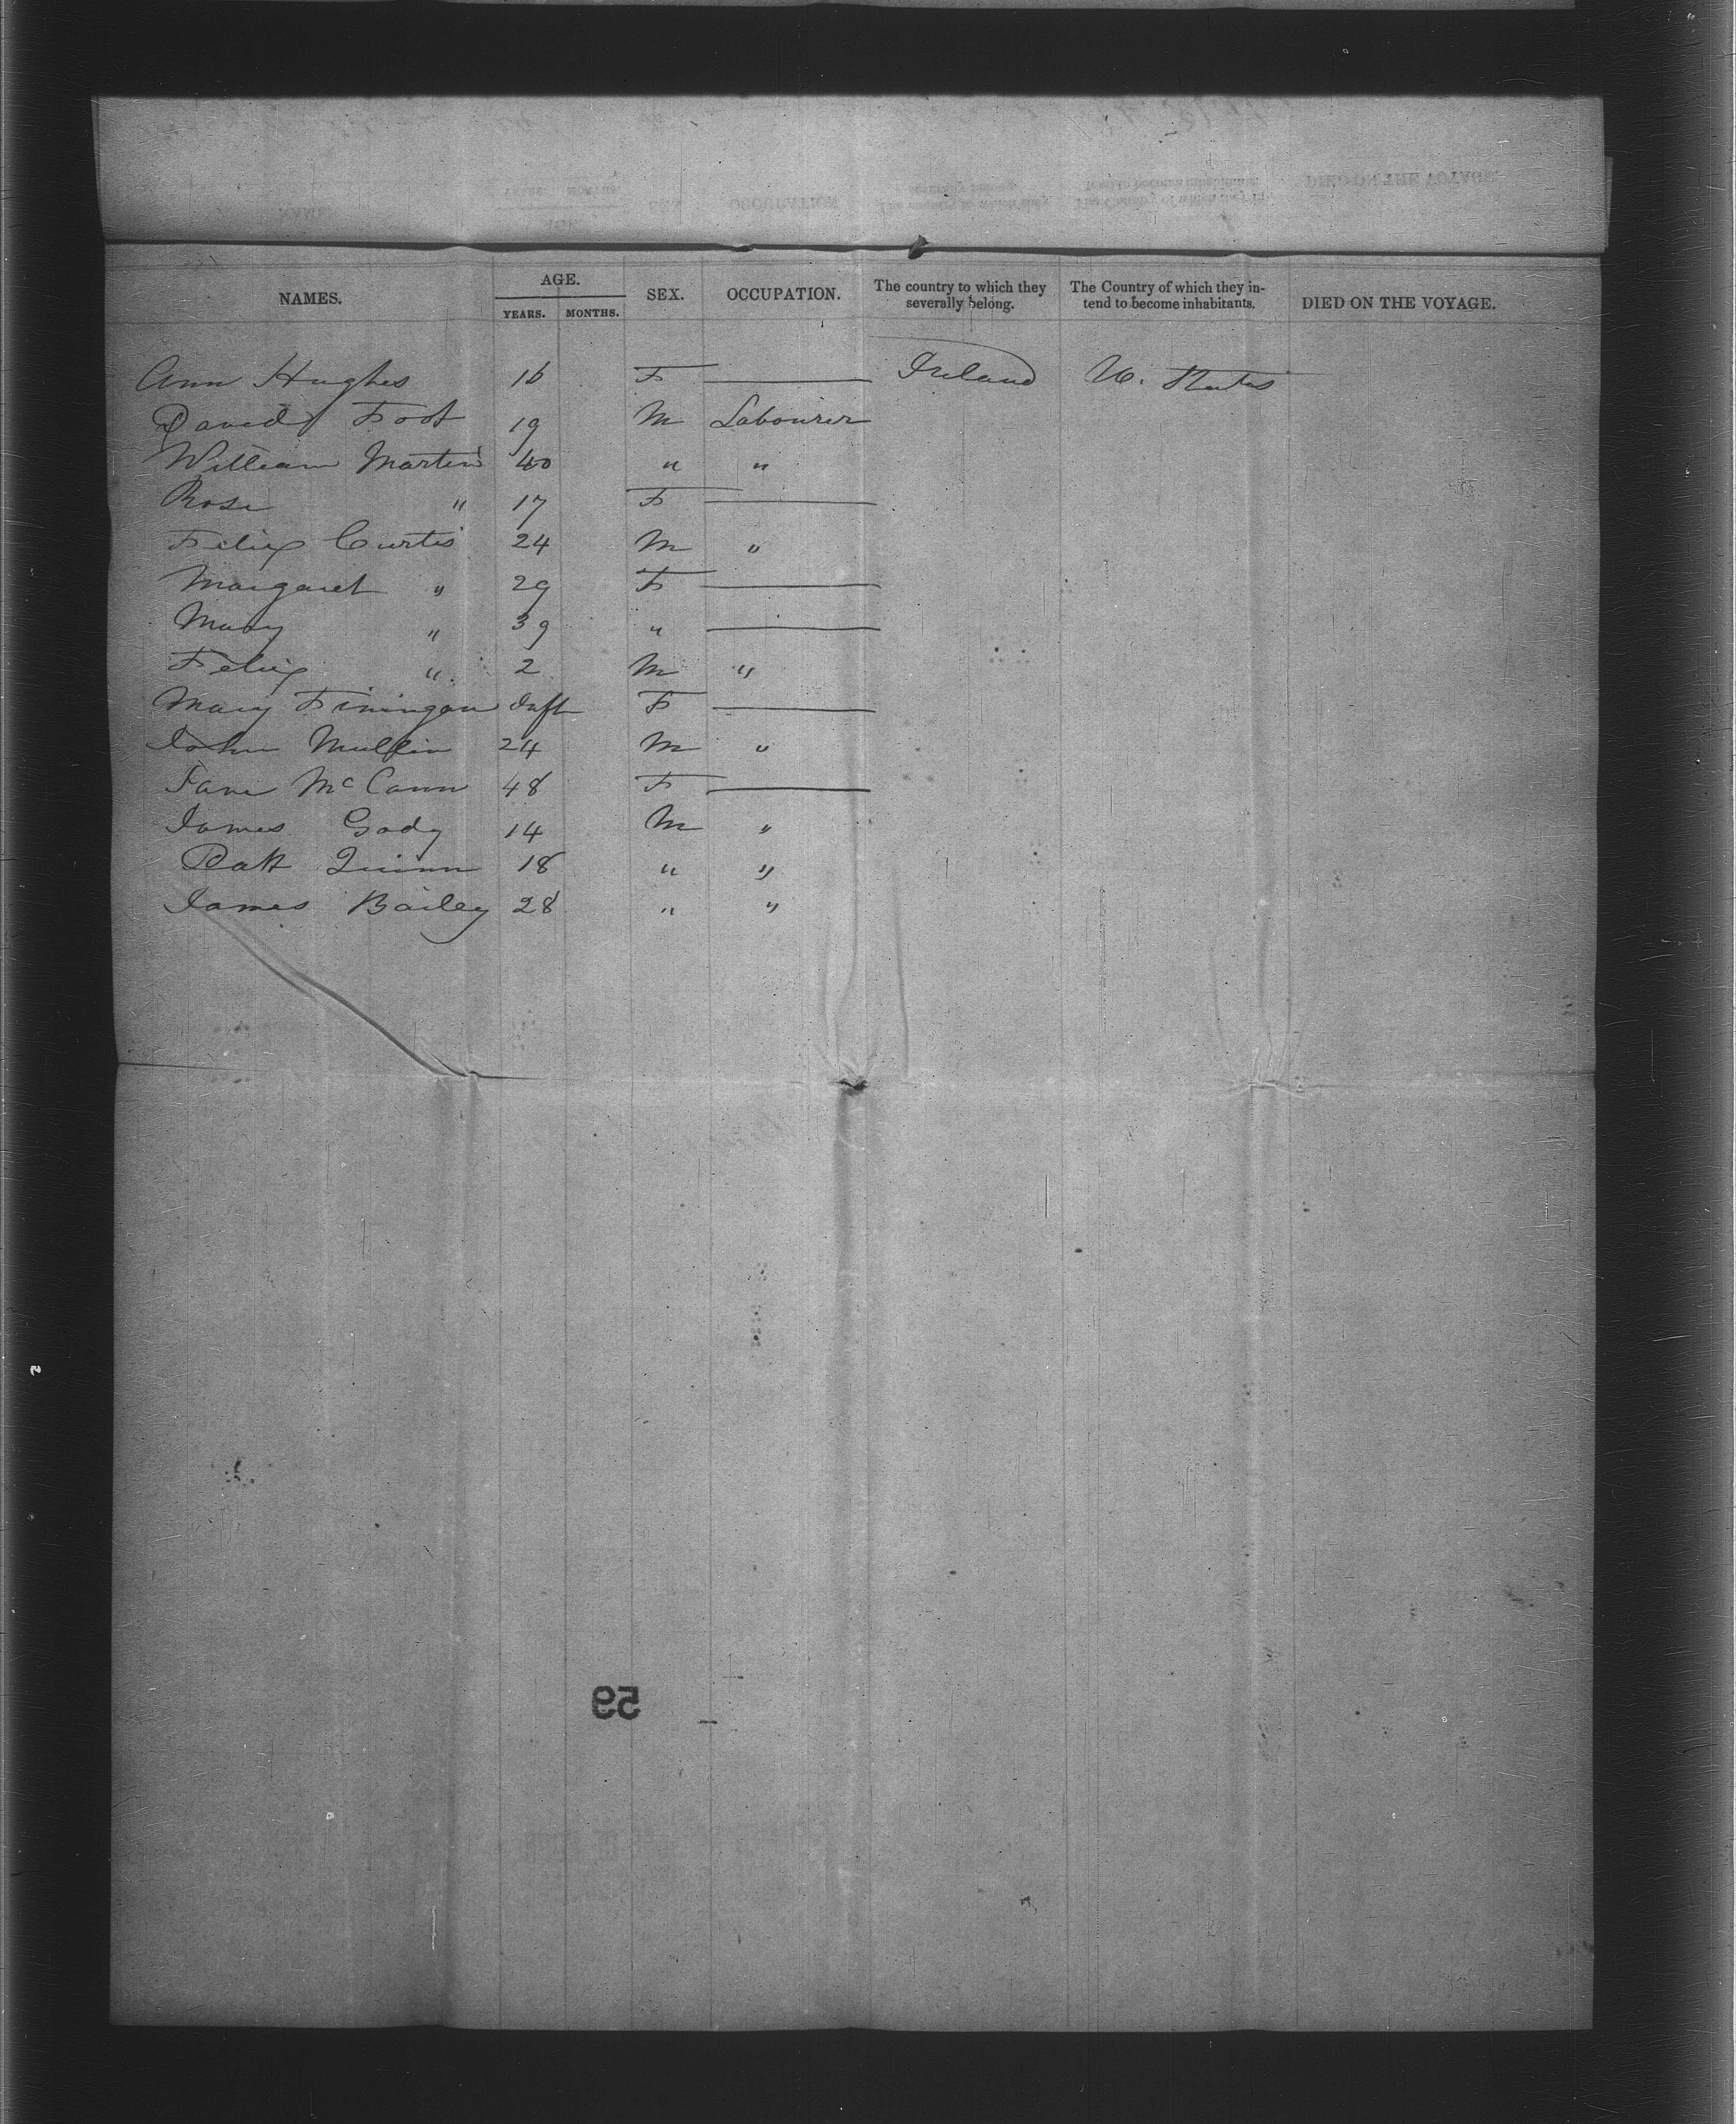 NAMES. AGE. YEARS. MONTHS. SEX. OCCUPATION. The country to which they severally belong. The Country of which they intend to become inhabitants. DIED ON THE VOYAGE.
Ann Hughes 16 F — Ireland U. States
David Foot 19 M Labourer
William Martin 40 " "
Rose " 17 F —
Felix Curtis 24 M "
Margaret " 29 F —
Mary " 39 " —
Felix " 2 M "
Mary Finingan Inft F —
John Mullin 24 M "
Jane McCann 48 F —
James Gody 14 M "
Patt Quinn 18 " "
James Bailey 28 " "
59